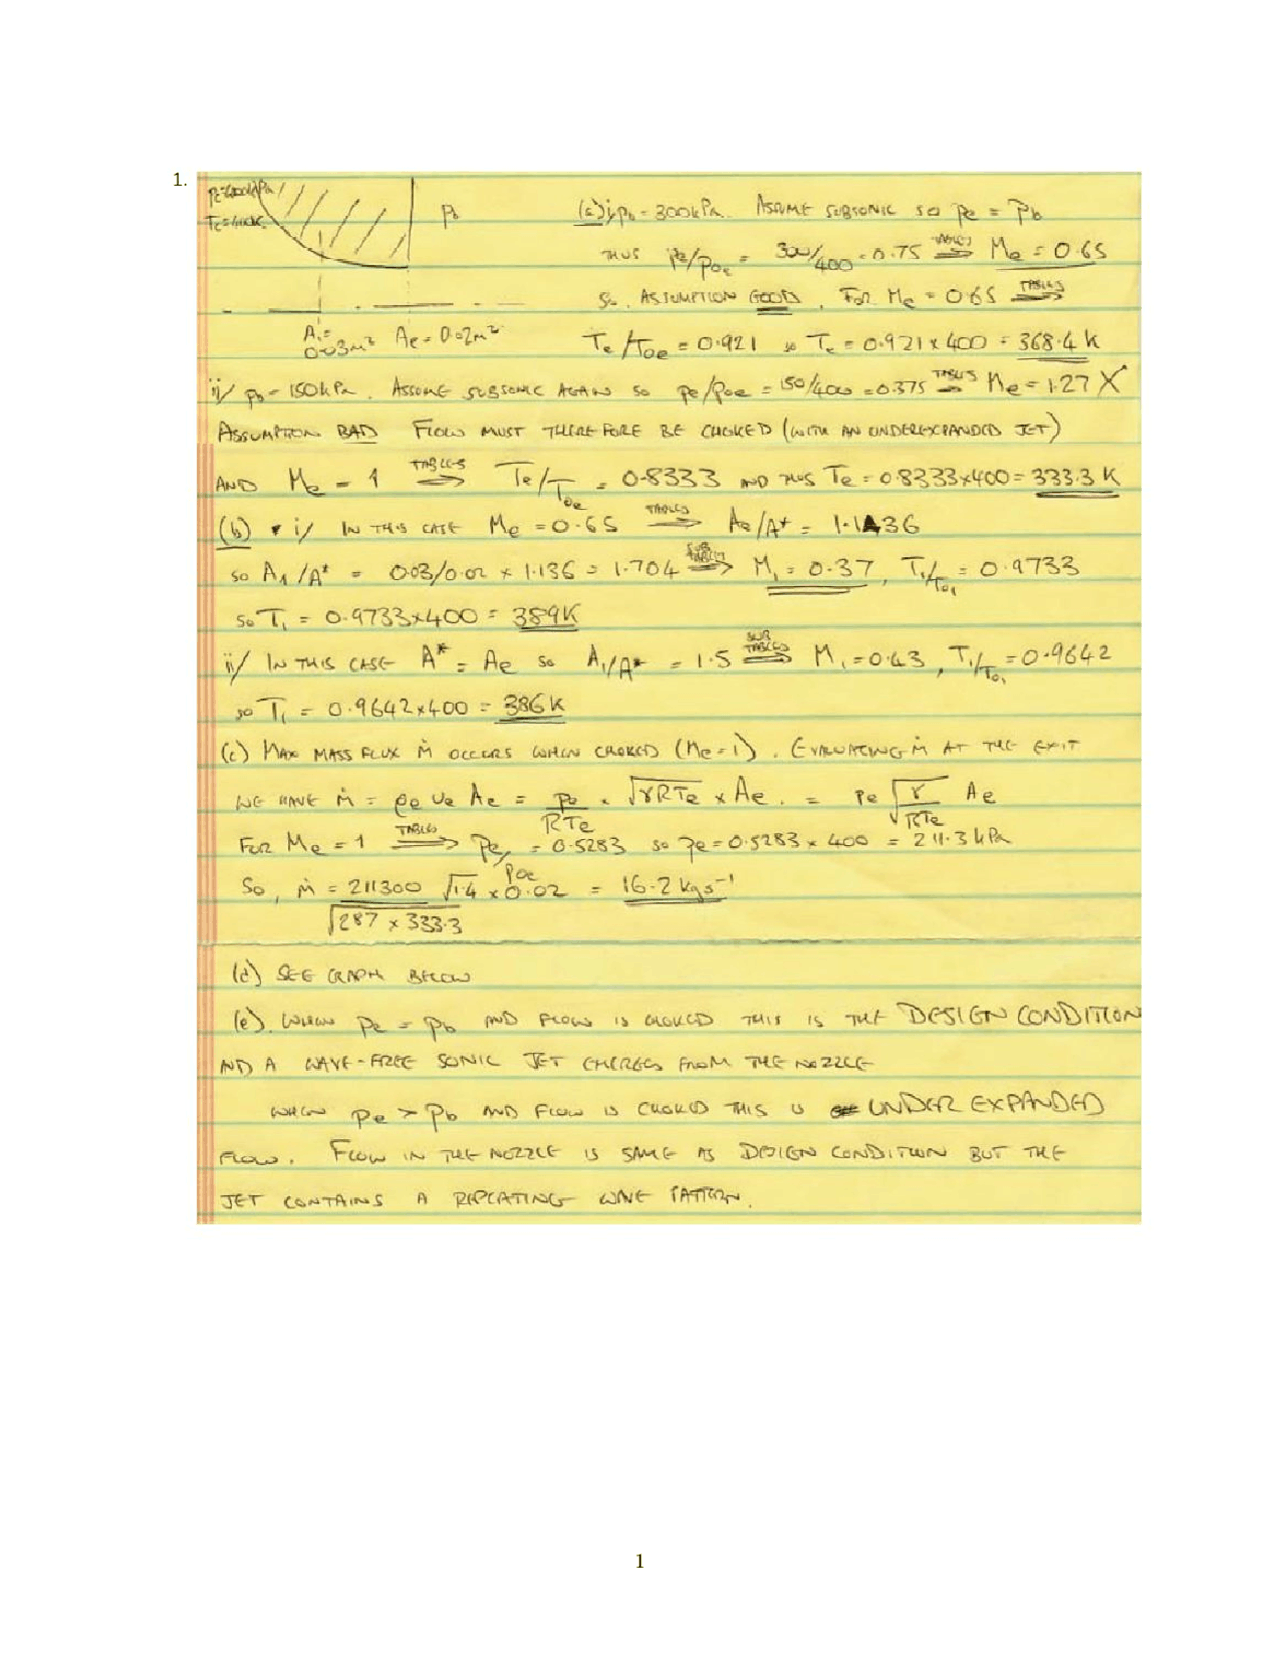 1.
Pc=400kPa
Tc=400K
Pb
(a) i/ pb = 300kPa. ASSUME SUBSONIC SO pe = pb
THUS pe/poe = 300/400 = 0.75 TABLES ⇒ Me = 0.65
SO, ASSUMPTION GOOD, FOR Me = 0.65 TABLES ⇒
A1 = 0.03m² Ae = 0.02m²
Te/Toe = 0.921 so Te = 0.921 x 400 = 368.4 K
ii/ pb = 150kPa. ASSUME SUBSONIC AGAIN so pe/poe = 150/400 = 0.375 TABLES ⇒ Me = 1.27 X
ASSUMPTION BAD FLOW MUST THEREFORE BE CHOKED (WITH AN UNDEREXPANDED JET)
AND Me = 1 TABLES ⇒ Te/Toe = 0.8333 AND THUS Te = 0.8333x400 = 333.3 K
(b) i/ IN THIS CASE Me = 0.65 TABLES ⇒ Ae/A* = 1.136
so A1/A* = 0.03/0.02 x 1.136 = 1.704 SUB TABLES ⇒ M1 = 0.37, T1/To1 = 0.9733
so T1 = 0.9733x400 = 389K
ii/ IN THIS CASE A* = Ae so A1/A* = 1.5 SUB TABLES ⇒ M1 = 0.43, T1/To1 = 0.9642
so T1 = 0.9642x400 = 386K
(c) MAX MASS FLUX ṁ OCCURS WHEN CHOKED (Me=1). EVALUATING ṁ AT THE EXIT
WE HAVE ṁ = ρe ue Ae = pe/RTe x √γRTe x Ae. = Pe √γ/RTe Ae
FOR Me = 1 TABLES ⇒ Pe/Poe = 0.5283 so pe = 0.5283 x 400 = 211.3 kPa
SO, ṁ = 211300 √1.4 x 0.02 / √287 x 333.3 = 16.2 kgs⁻¹
(d) SEE GRAPH BELOW
(e). WHEN Pe = Pb AND FLOW IS CHOKED THIS IS THE DESIGN CONDITION
AND A WAVE-FREE SONIC JET EMERGES FROM THE NOZZLE
WHEN Pe > Pb AND FLOW IS CHOKED THIS IS UNDER EXPANDED
FLOW. FLOW IN THE NOZZLE IS SAME AS DESIGN CONDITION BUT THE
JET CONTAINS A REPEATING WAVE PATTERN.
1